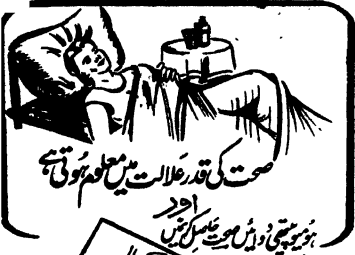 صحت کی قدر علالت میں معلوم ہوتی ہے
اور
ہومیوپیتھی دوائیں صحت حاصل کرنیں